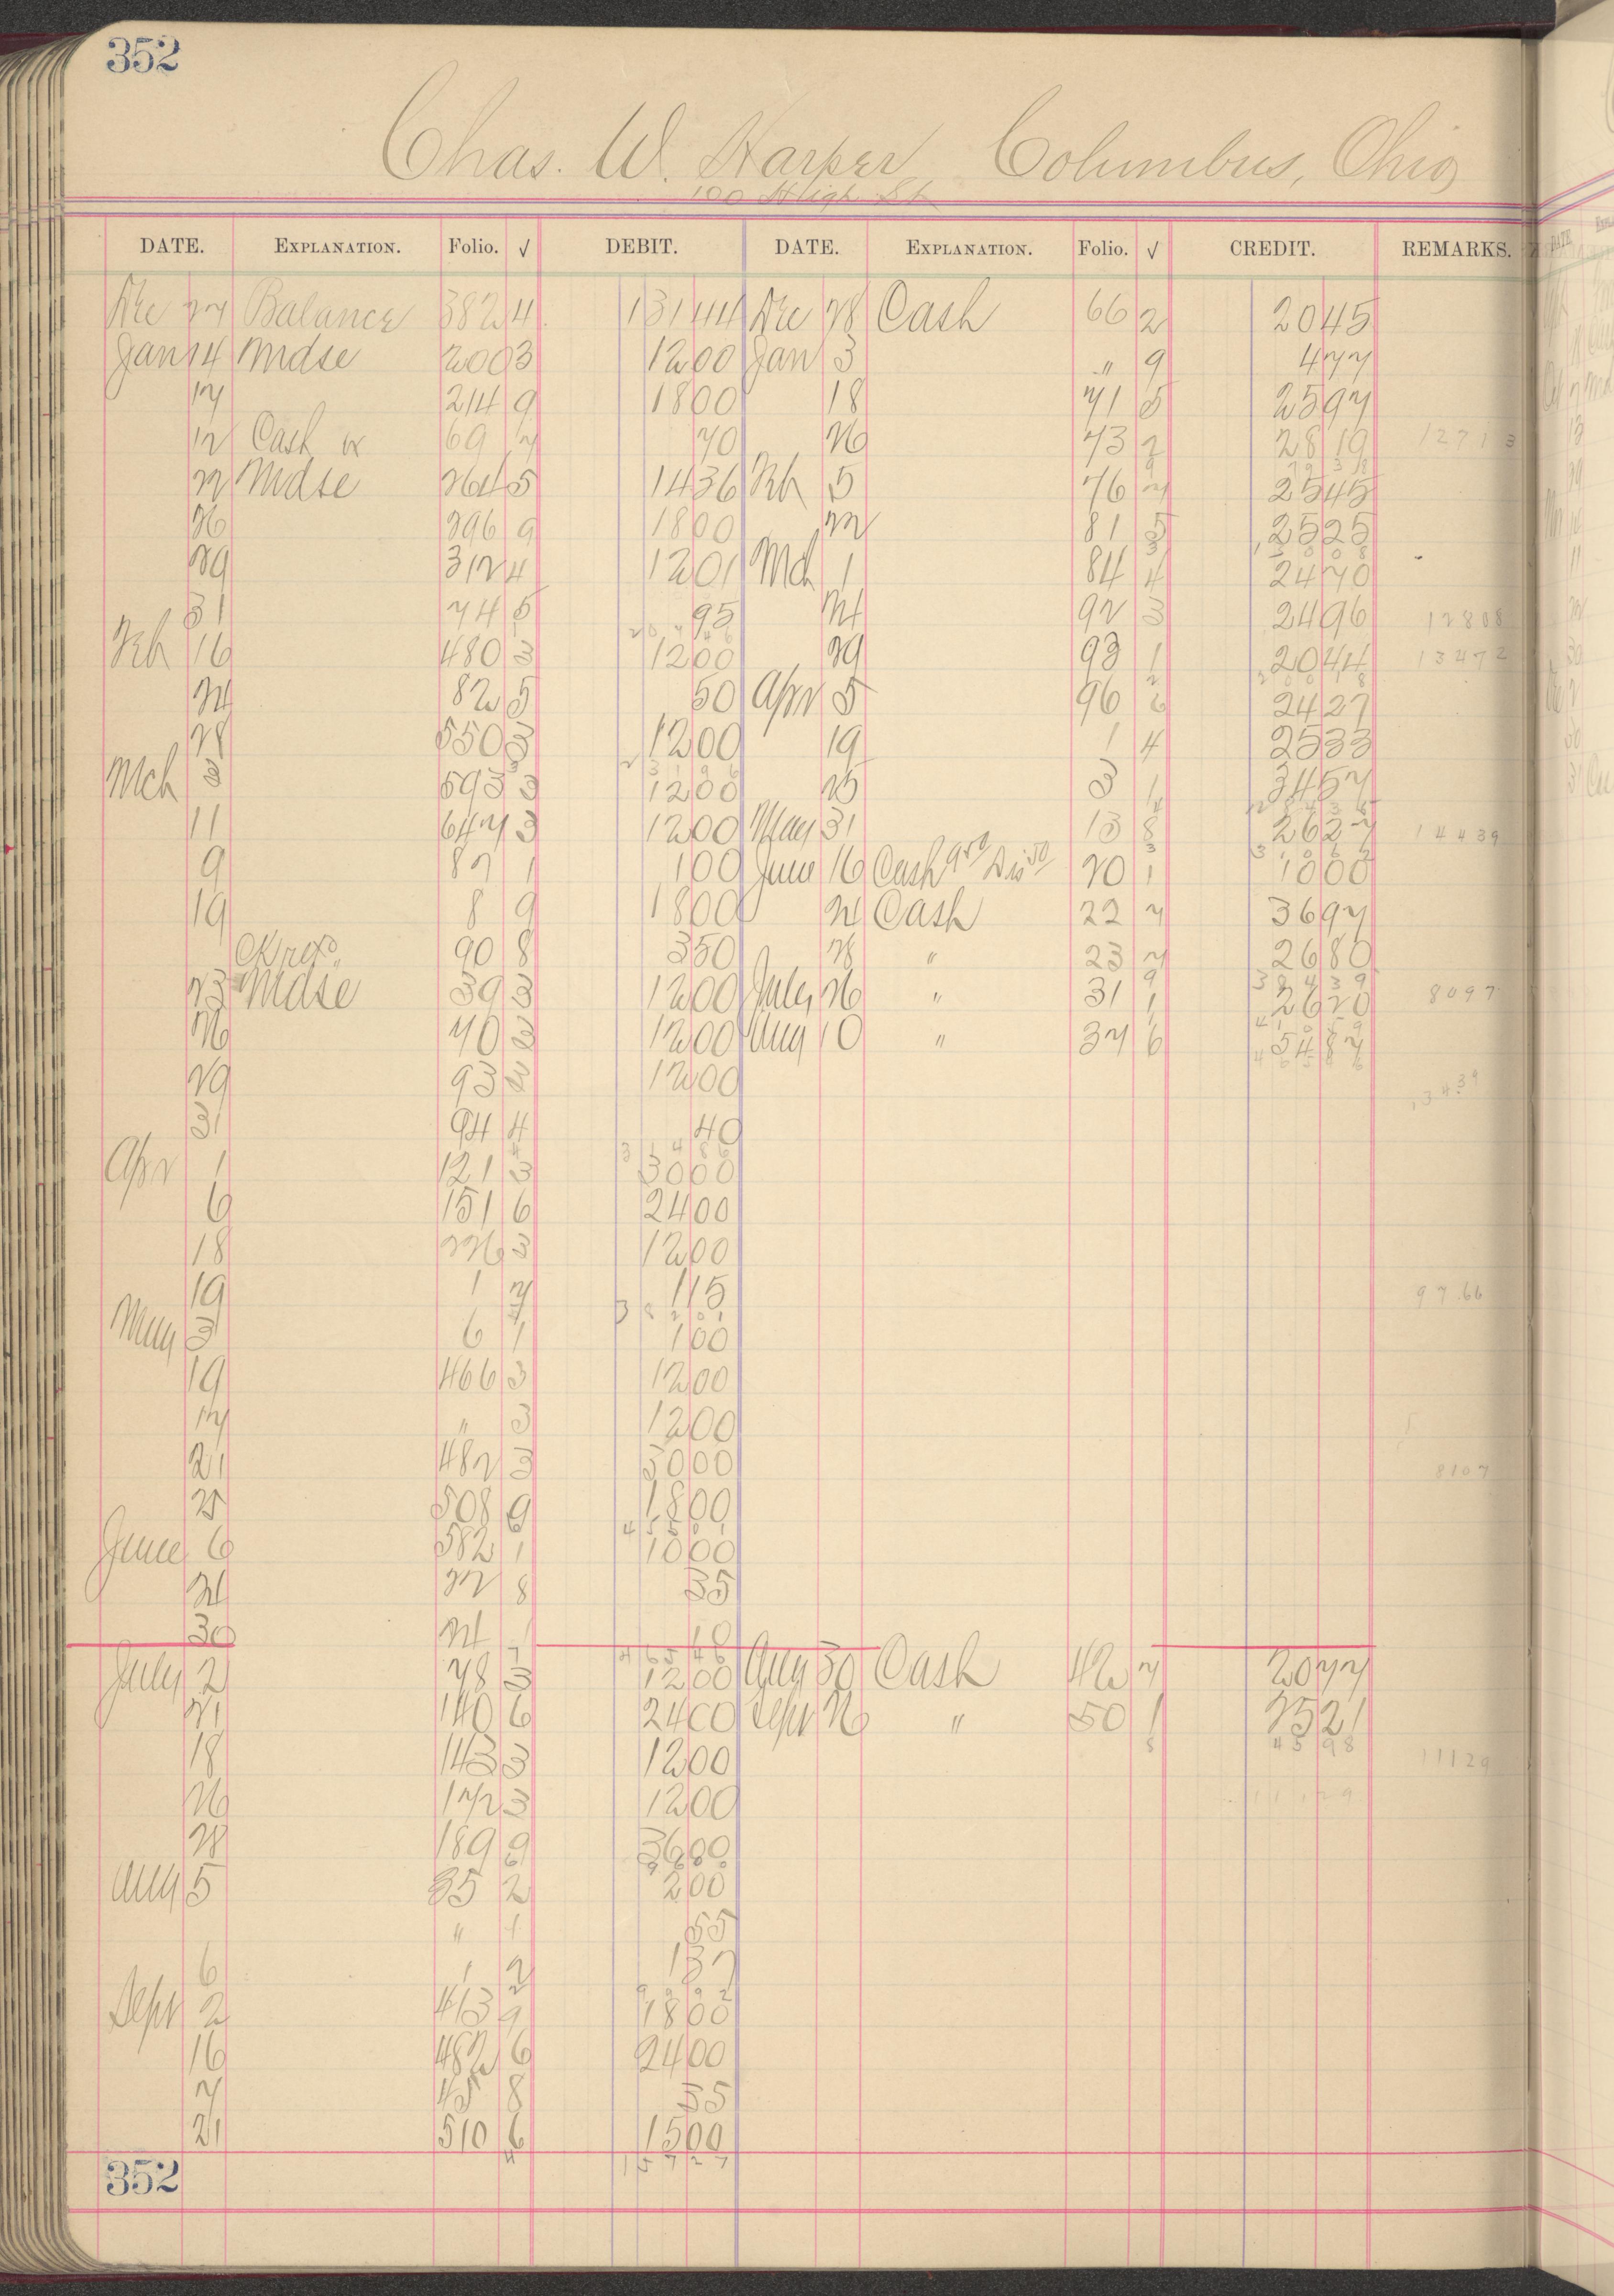 352
Chas. W. Harper, Columbus, Ohio
100 High St
DATE. EXPLANATION. Folio. √ DEBIT. DATE. EXPLANATION. Folio. √ CREDIT. REMARKS.
Dec 27 Balance 382 4 131 44 Dec 28 Cash 66 2 20 45
Jan 14 Mdse 200 3 12 00 Jan 3 " 9 4 77
17 214 9 18 00 18 71 5 25 97
12 Cash 69 7 70 26 73 2 28 19 12713
22 Mdse 264 5 14 36 Feb 5 76 7 25 45
26 296 9 18 00 22 81 5 25 25
29 312 4 12 01 Mch 1 84 4 24 70
31 74 5 95 24 92 3 24 96 12808
Feb 16 480 3 12 00 29 93 1 20 44 13472
24 82 5 50 Apr 5 96 24 27
28 550 3 12 00 19 1 4 25 33
Mch 3 593 3 12 00 25 3 1 34 57
11 647 3 12 00 May 31 13 8 26 27 14439
9 87 1 1 00 June 16 Cash 9 50 Dis 50 20 1 10 00
19 8 9 18 00 21 Cash 22 7 36 97
90 8 3 50 28 " 23 7 26 80
23 Mdse 39 3 12 00 July 26 " 31 1 26 20 8097
26 70 3 12 00 Aug 10 " 37 6 54 87
29 93 3 12 00
31 94 4 40
3 1 4 8 6
Apr 1 121 3 30 00
6 151 6 24 00
18 226 3 12 00
19 1 7 1 15 97.66
May 3 6 1 1 00
19 466 3 12 00
17 " 3 12 00
21 482 3 30 00 8107
25 508 9 18 00
4 5 5 0 1
June 6 582 1 10 00
24 22 8 35
30 24 1 10
4 6 5 4 6
July 2 78 3 12 00 Aug 30 Cash 42 7 20 77
21 140 6 24 00 Sept 26 " 50 1 25 21
18 143 3 12 00 8 45 98 11129
26 172 3 12 00 11129
28 189 9 36 00
Aug 5 35 2 2 00
" 1 55
6 1 2 1 37
Sept 2 413 9 18 00
16 482 6 24 00
7 45 8 35
21 510 6 15 00
4 1 5 7 2 7
352